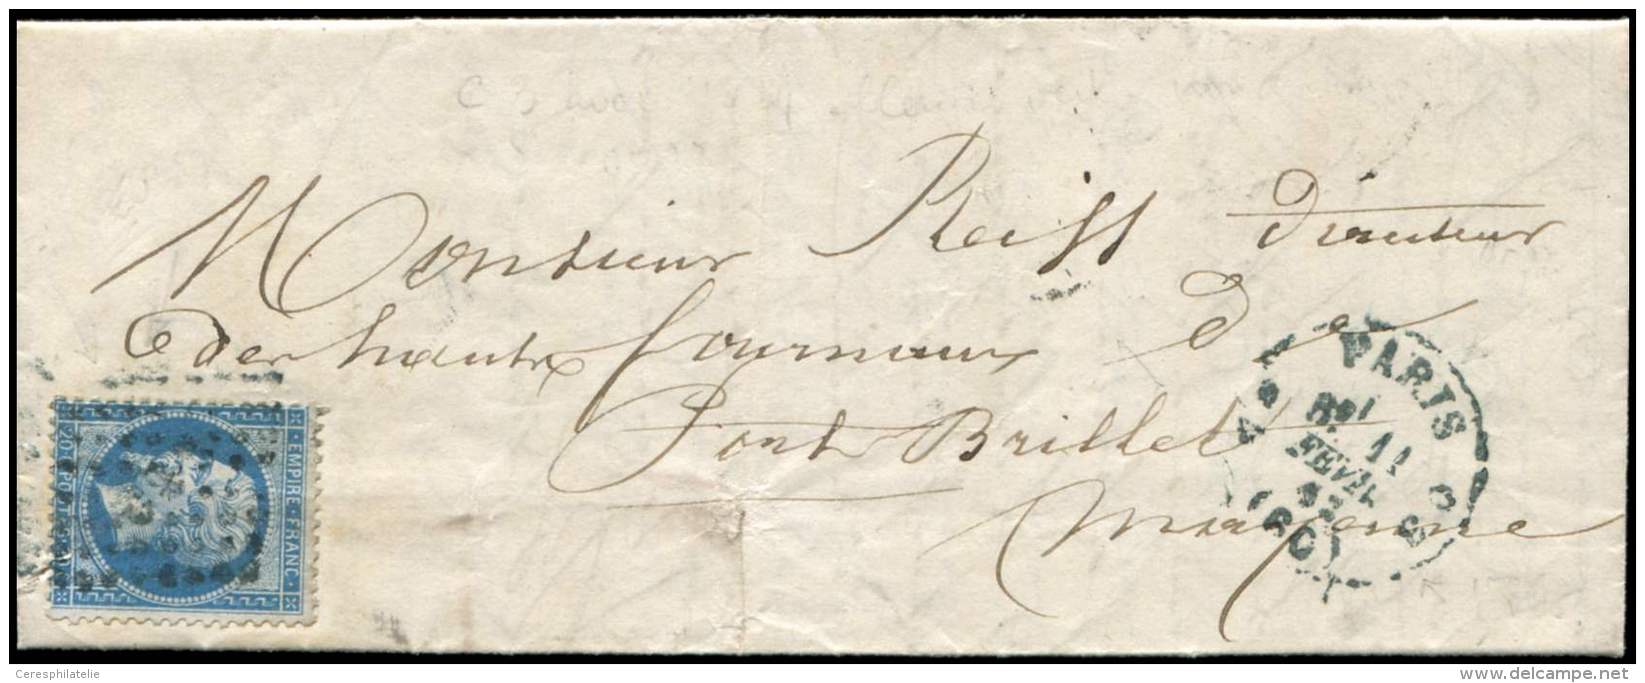 Monsieur Reiss directeur
der hauts fourneaux de
Port Brillet
Mayenne
PARIS
11
FEVR.
(60)
EMPIRE FRANC
20 c POSTES 20 c
Ceresphilatelie
www.delcampe.net